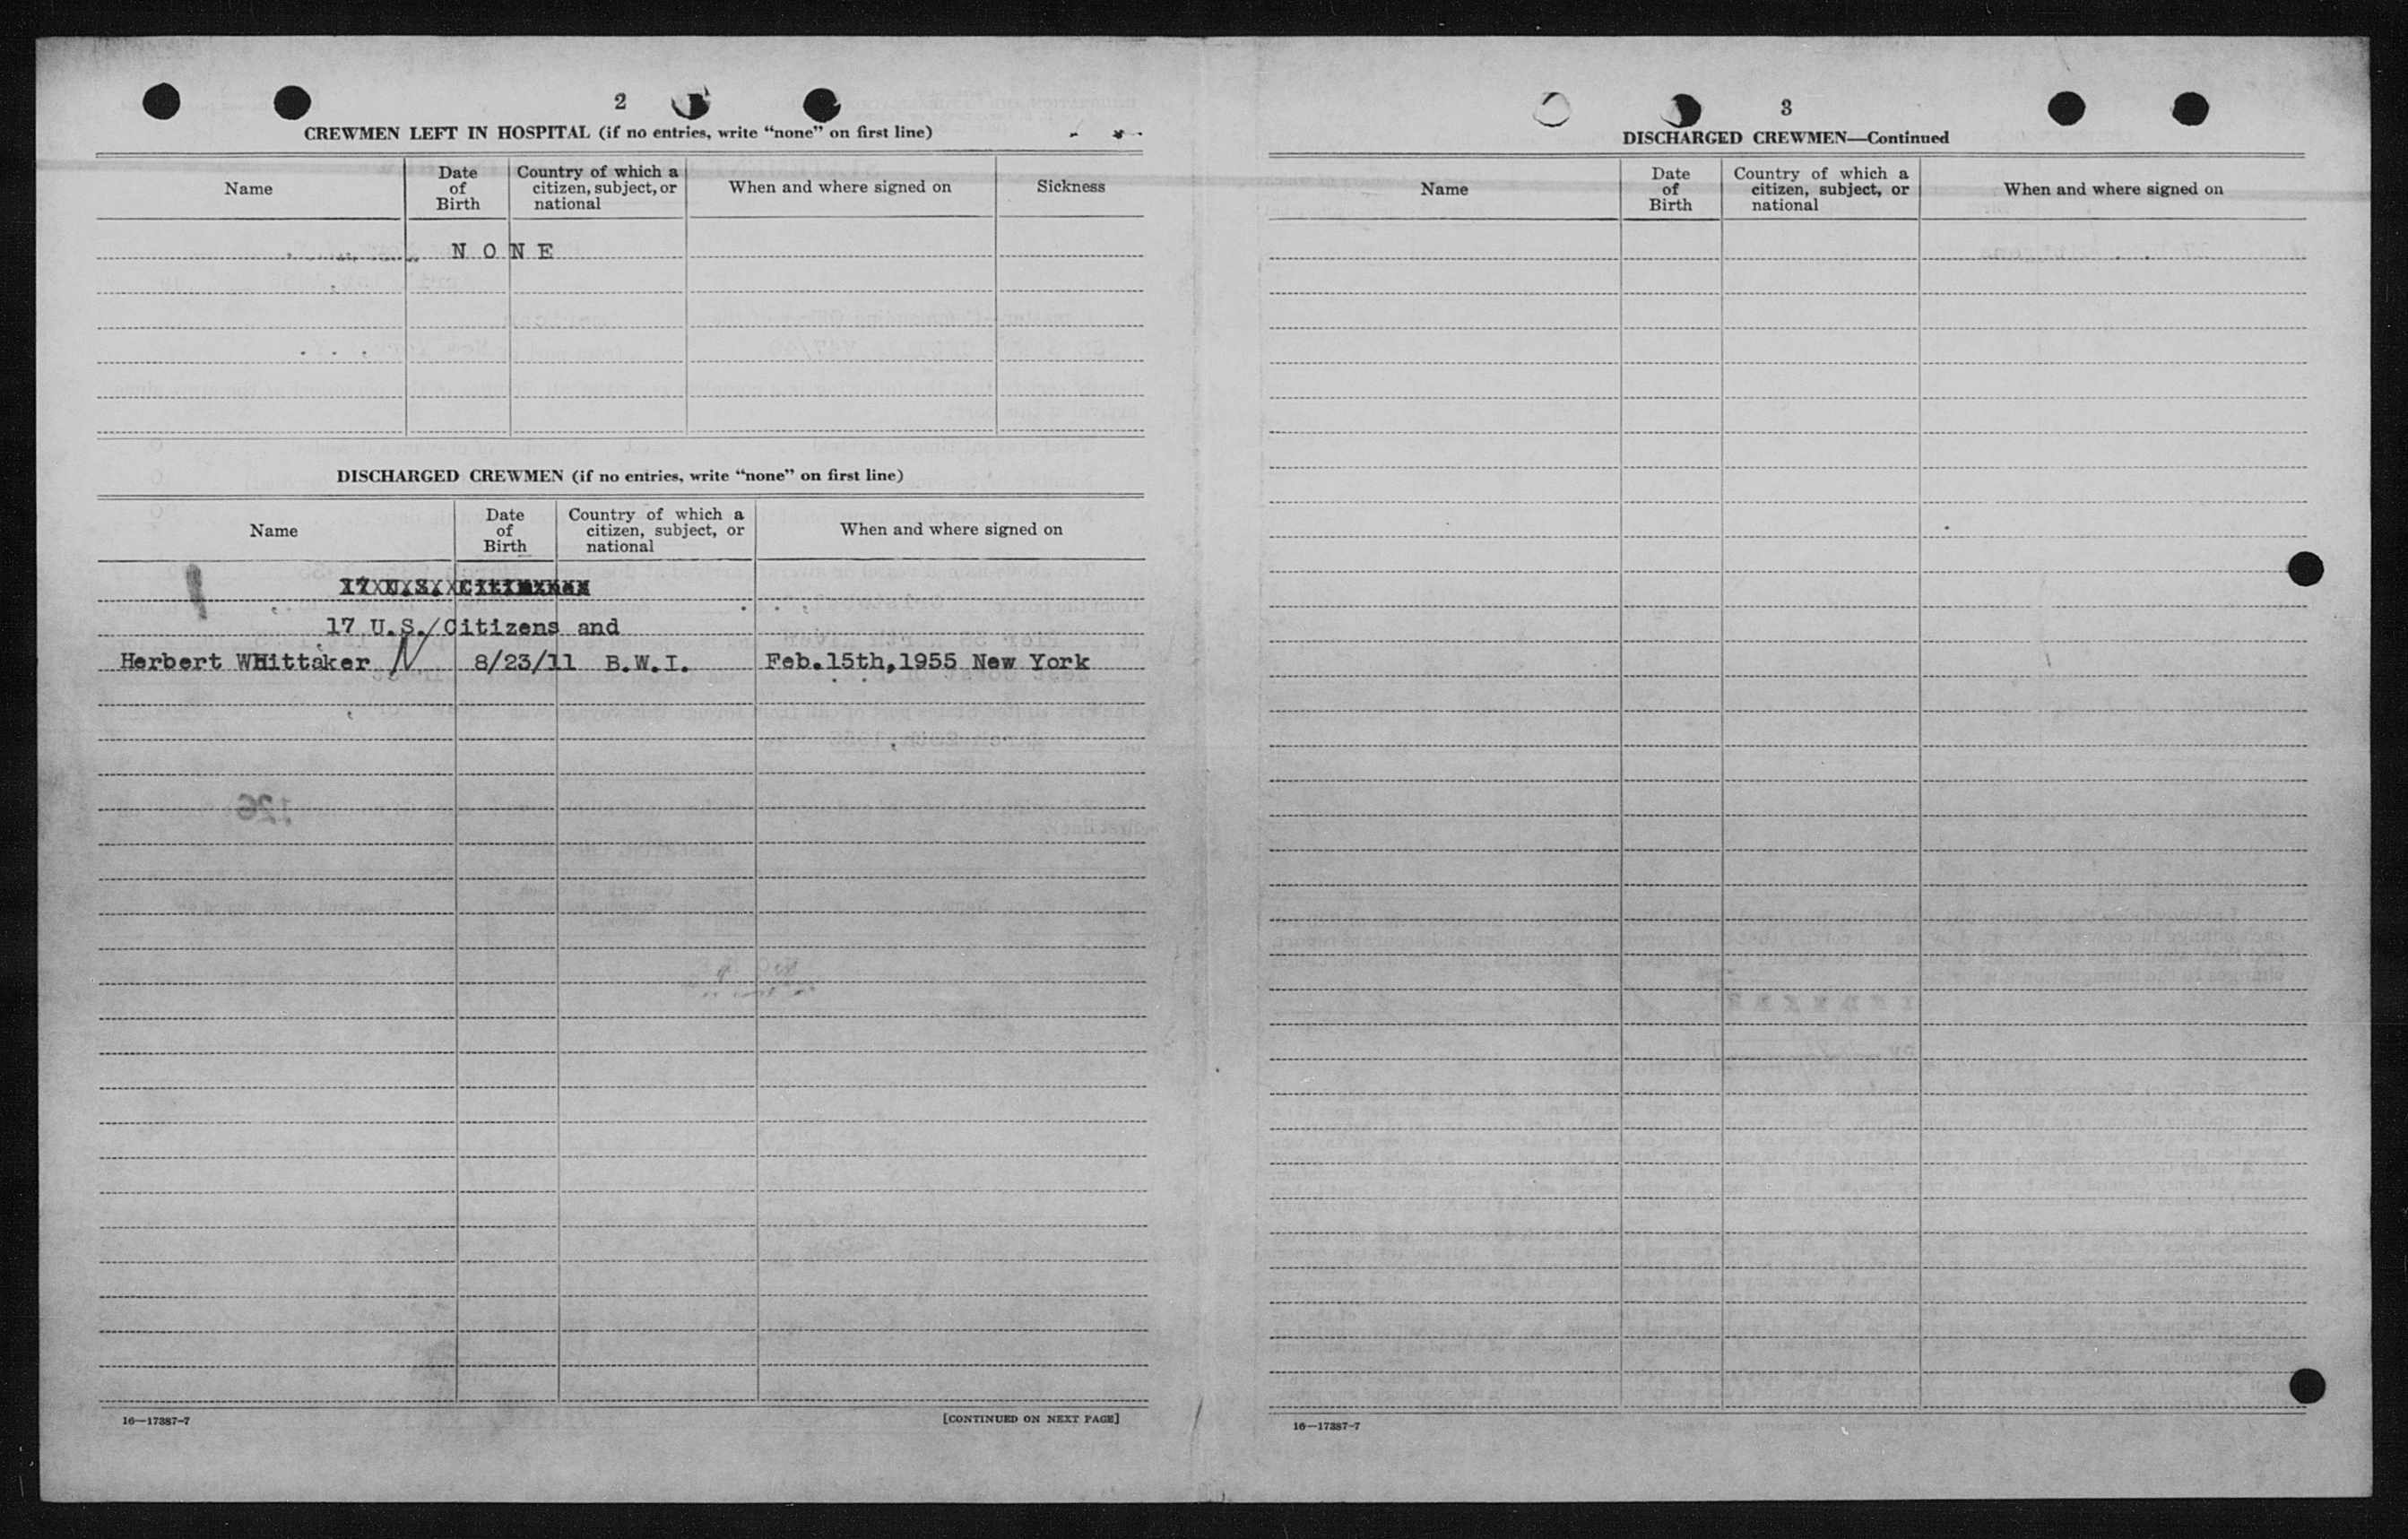 2
CREWMEN LEFT IN HOSPITAL (if no entries, write "none" on first line)
Name
Date of Birth
Country of which a citizen, subject, or national
When and where signed on
Sickness
N O N E
DISCHARGED CREWMEN (if no entries, write "none" on first line)
Name
Date of Birth
Country of which a citizen, subject, or national
When and where signed on
17 U.S. Citizens
17 U.S. Citizens and
Herbert WHittaker N 8/23/11 B.W.I. Feb.15th,1955 New York
126
16—17387-7
[CONTINUED ON NEXT PAGE]
3
DISCHARGED CREWMEN—Continued
Name
Date of Birth
Country of which a citizen, subject, or national
When and where signed on
16—17387-7